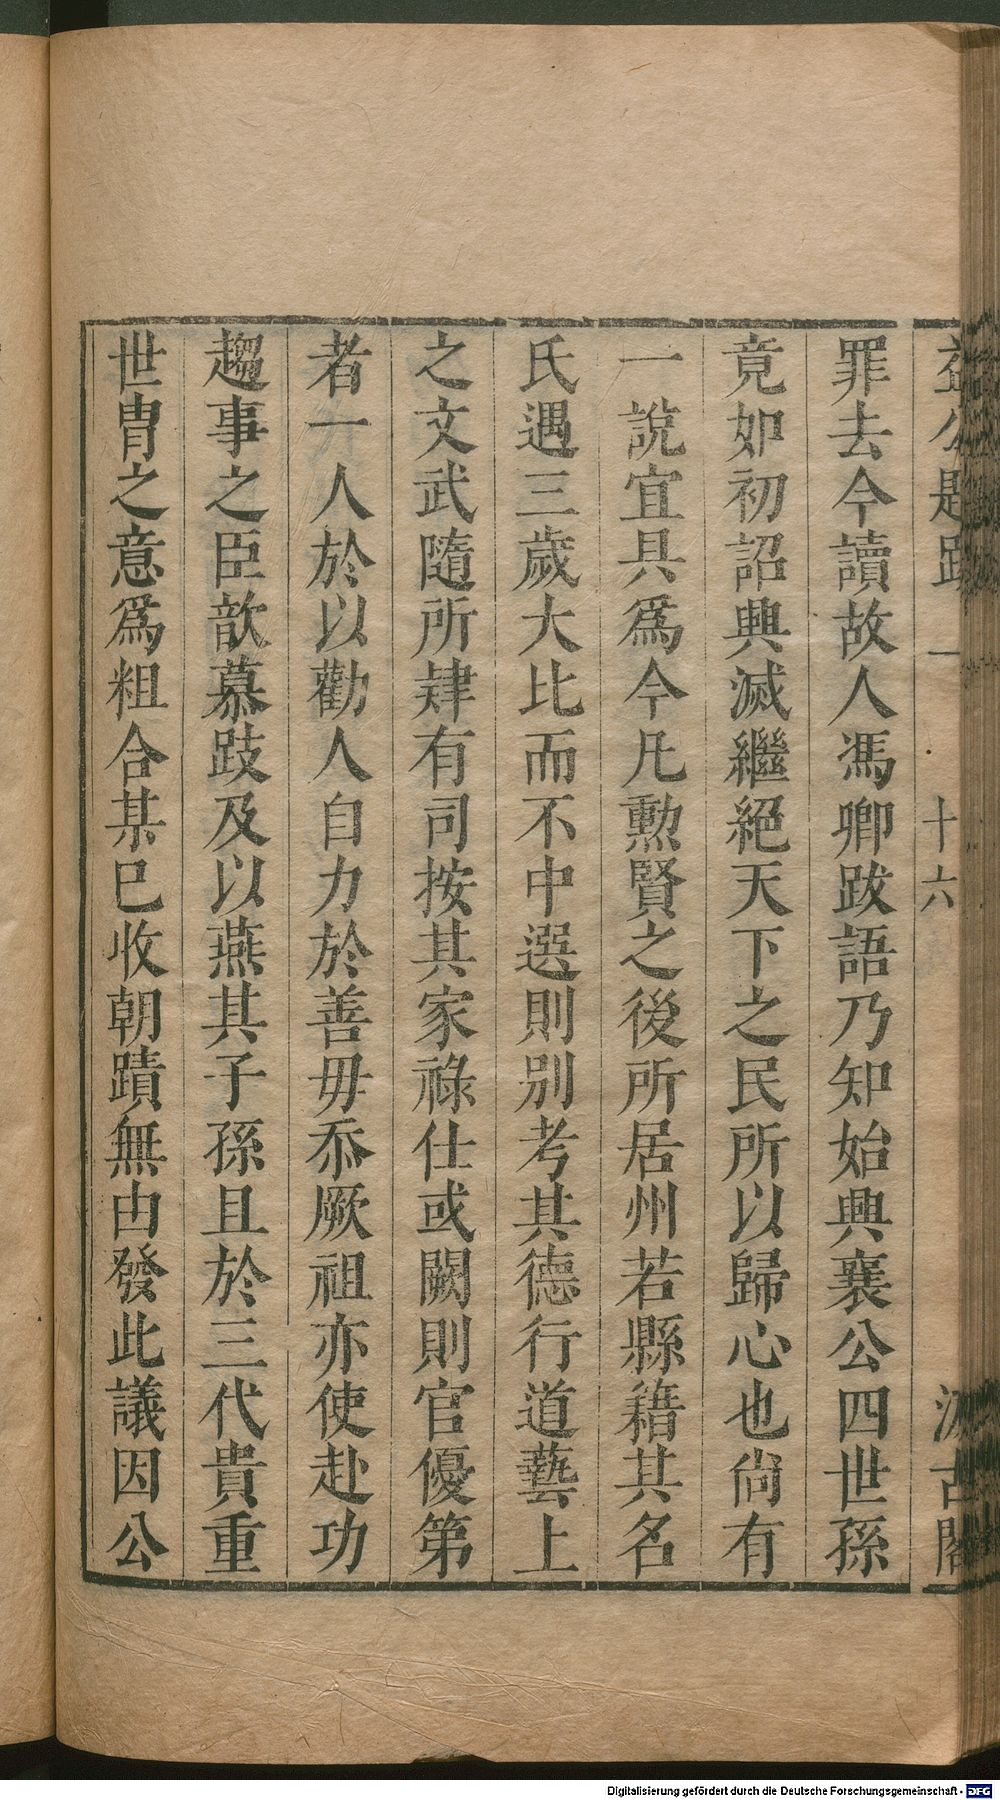 益公題跋 一 十六 汲古閣
罪去今讀故人馮卿跋語乃知始興襄公四世孫
竟如初詔興滅繼絕天下之民所以歸心也尙有
一說宜具爲今凡勲賢之後所居州若縣籍其名
氏遇三歲大比而不中選則別考其德行道藝上
之文武隨所肄有司按其家祿仕或闕則官優第
者一人於以勸人自力於善毋忝厥祖亦使赴功
趨事之臣歆慕跂及以燕其子孫且於三代貴重
世胄之意爲粗合某已收朝蹟無由發此議因公
Digitalisierung gefördert durch die Deutsche Forschungsgemeinschaft - DFG